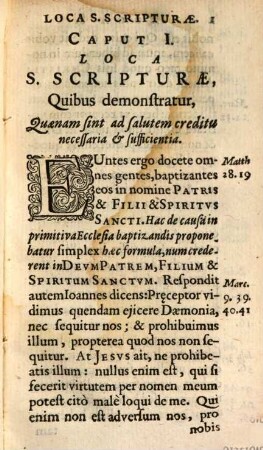 LOCA S. SCRIPTURÆ. 1
CAPUT I.
LOCA
S. SCRIPTURÆ,
Quibus demonstratur,
Quænam sint ad salutem creditu
necessaria & sufficientia.
EUntes ergo docete om- Matth
nes gentes, baptizantes 28.19
eos in nomine PATRIS
& FILII & SPIRITVS
SANCTI. Hac de causa in
primitiva Ecclesia baptizandis propone-
batur simplex hæc formula, num crede-
rent in DEVM PATREM, FILIUM &
SPIRITUM SANCTVM. Respondit
autem Ioannes dicens: Præceptor vi- Marc.
dimus quendam ejicere Dæmonia, 9. 39.
nec sequitur nos; & prohibuimus 40.41
illum, propterea quod nos non se-
quitur. At JESVS ait, ne prohibe-
atis illum: nullus enim est, qui si
fecerit virtutem per nomen meum
potest citò malè loqui de me. Qui
enim non est adversum nos, pro
nobis